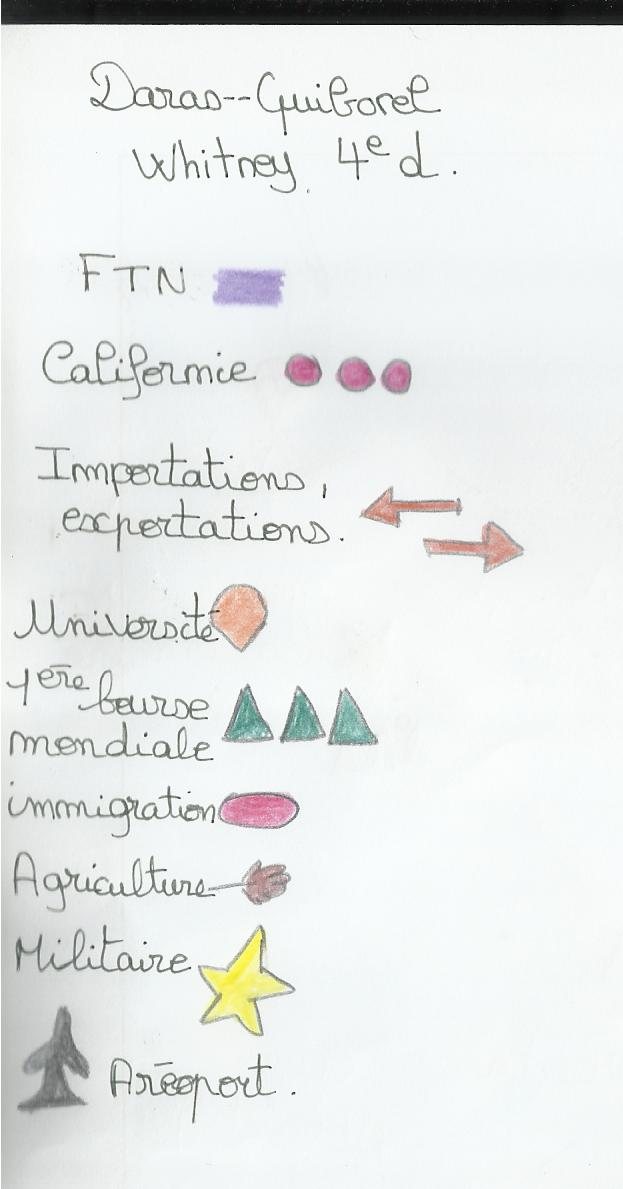 Daras--Guiborel
Whitney 4e d.
FTN
Californie
Importations,
exportations.
Université
1ère bourse
mondiale
immigration
Agriculture
Militaire
Aréoport.